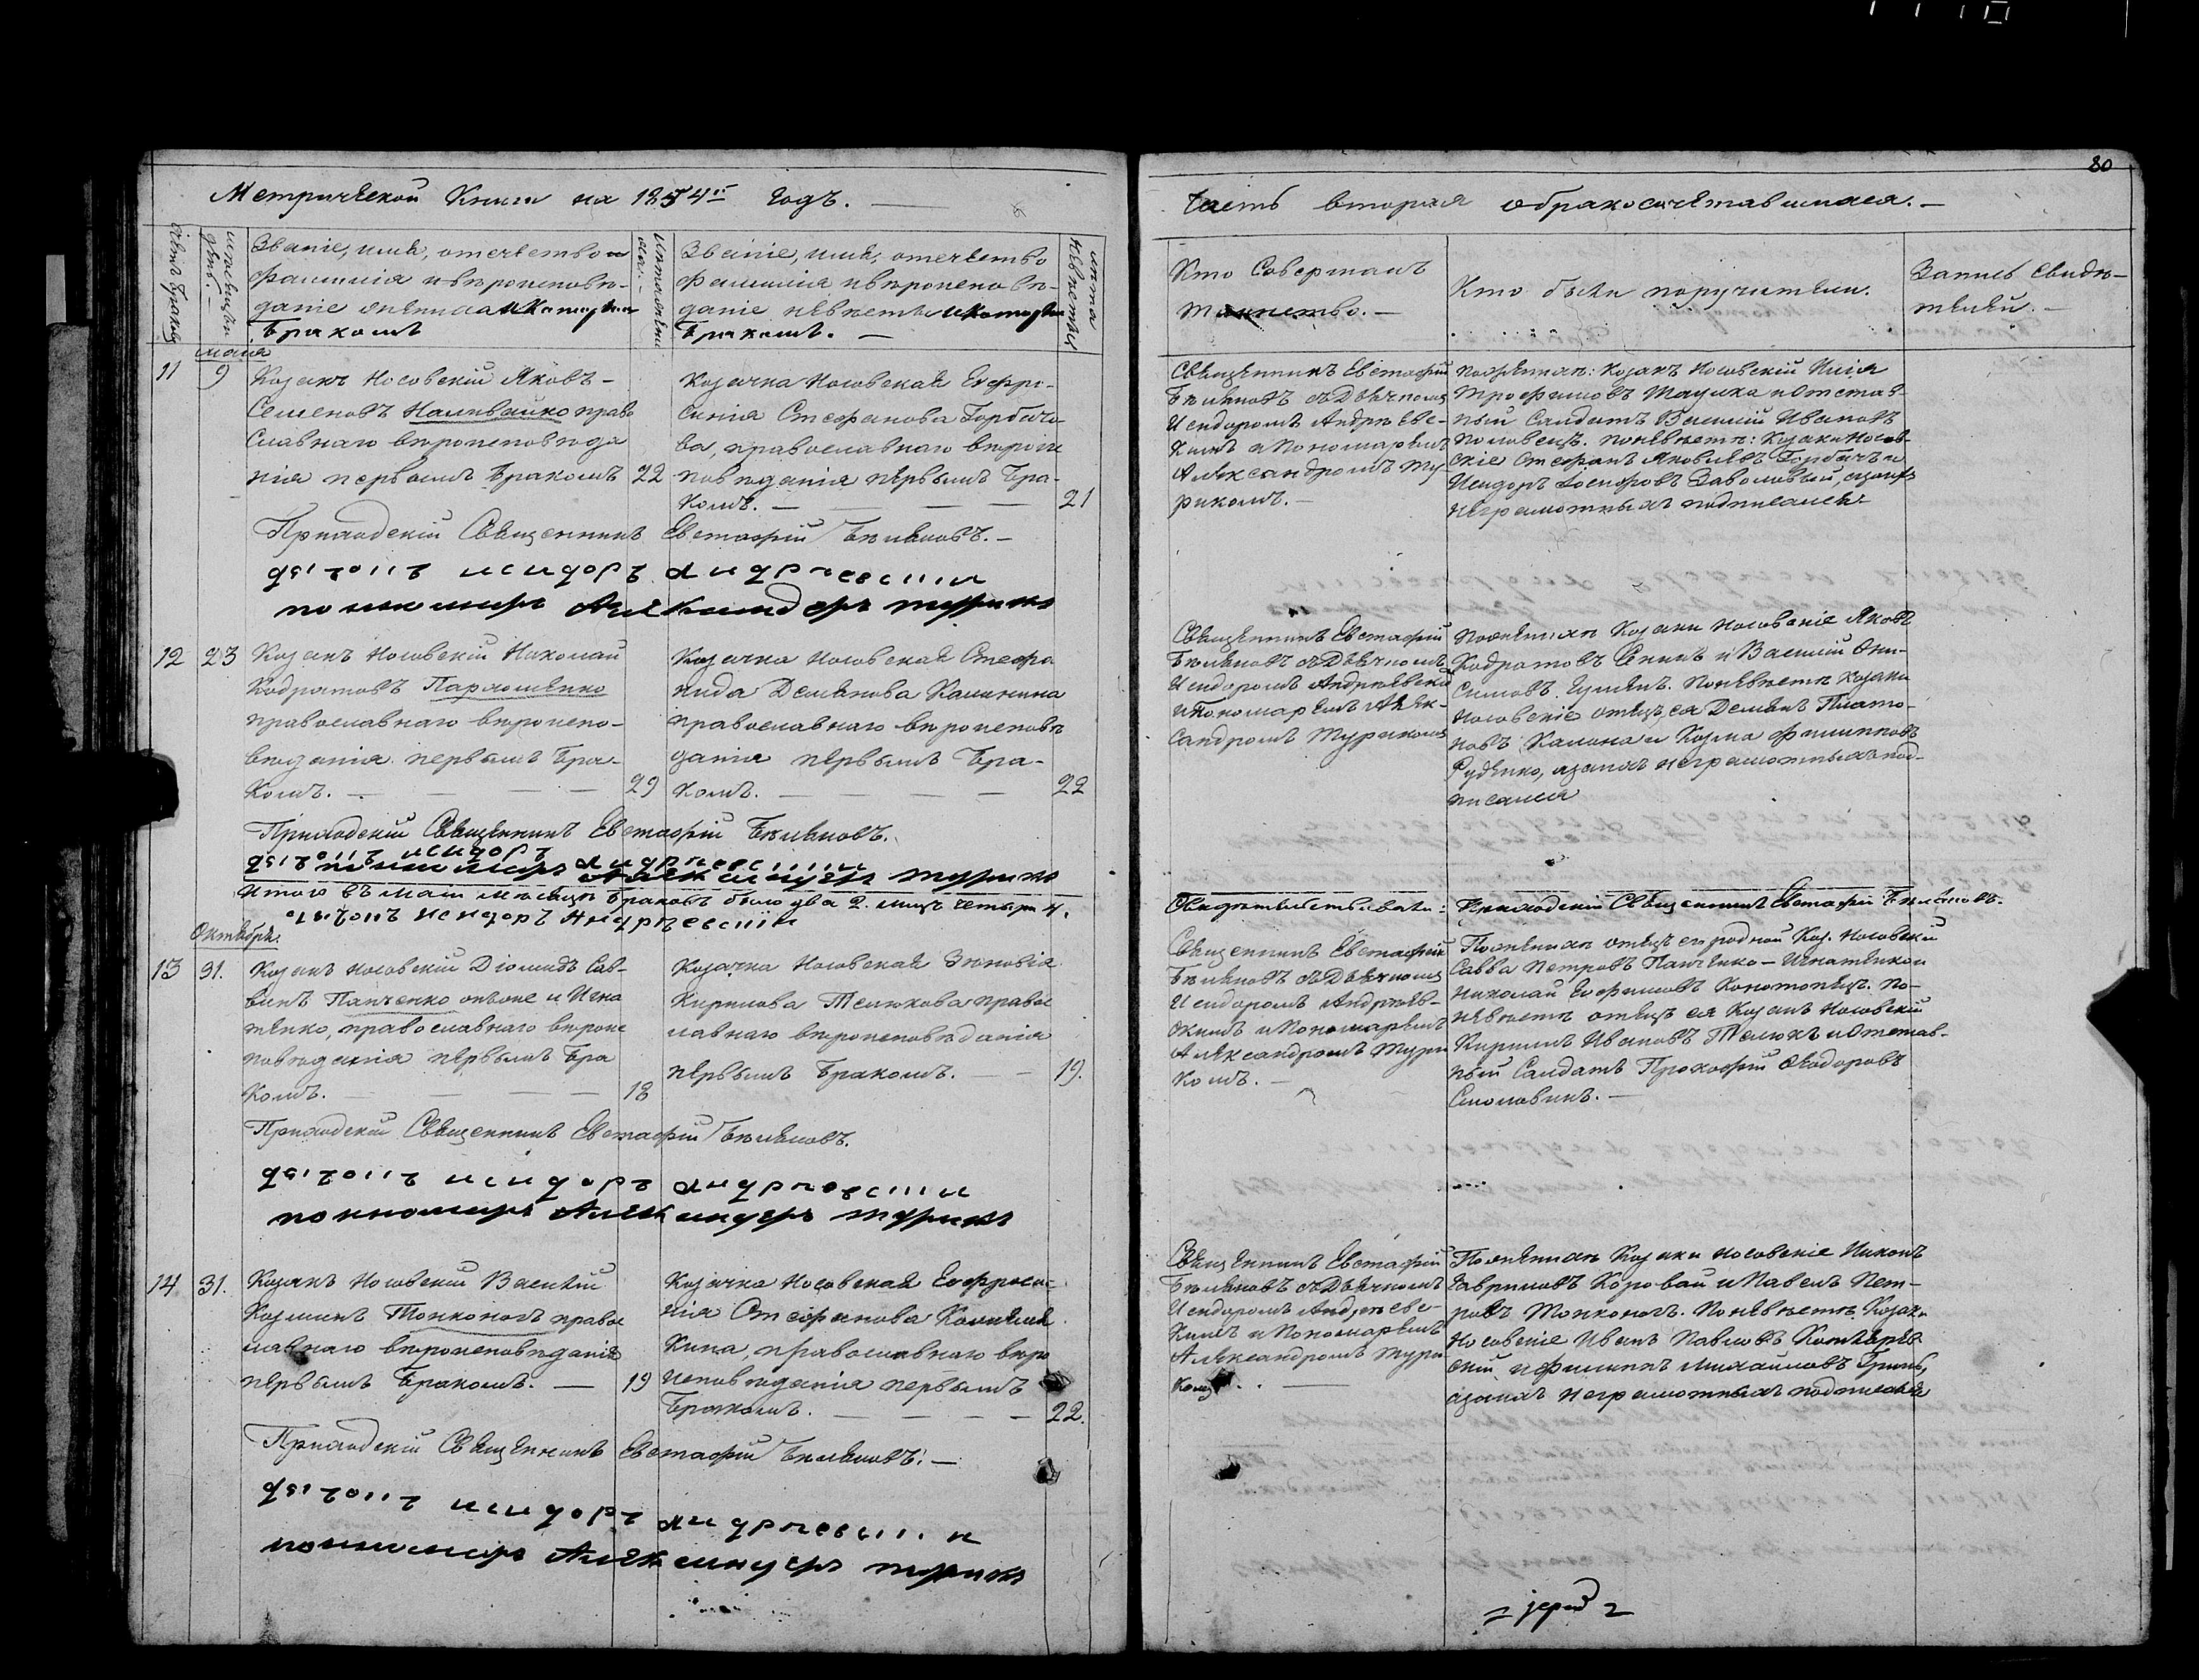 Метрической Книги на 1854й годъ.
Часть вторая обракосочетавшихся.
80
Званіе, имя, отечество и
фамилія и вѣроисповѣ-
даніе жениха и которымъ
бракомъ
Званіе, имя, отечество
фамилія и вѣроисповѣ-
даніе невѣсты и которымъ
бракомъ.
Кто Совершалъ
таинство.
Кто были поручители.
Запись свидѣ-
телей.
мая
11
9
Козакъ Носовскій Яковъ
Семеновъ Наливайко право
славнаго вѣроисповѣда
нія первымъ бракомъ
22
Козачка Носовская Евфро-
синія Стефанова Горбачо-
ва, православнаго вѣроис
повѣданія первымъ бра-
комъ.
21
Священникъ Евстафій
Бѣляновъ съ Дьячкомъ
Исидоромъ Андріевс-
кимъ и Пономаремъ
Александромъ Ту-
рикомъ.
По женихѣ: козакъ Носовскій Илія
Трофимовъ и отстав-
ный Солдатъ Василій Ивановъ
Половецъ. по невѣстѣ: козаки Носов-
скіе Стефанъ Яковлевъ Горбачъ и
Исидоръ Іосифовъ
неграмотныхъ подписался
Приходскій Священникъ Евстафій Бѣляновъ.
дьячокъ исидоръ андріевскій
пономарь Александеръ турикъ
12
23
Козакъ Носовскій Николай
Кодратовъ Пархоменко
православнаго вѣроиспо-
вѣданія первымъ бра-
комъ.
29
Козачка Носовская Стефа
нида Демянова Калинина
православнаго вѣроисповѣ
данія первымъ бра-
комъ.
22
Священникъ Евстафій
Бѣляновъ съ Дьячкомъ
Исидоромъ Андріевски
и Пономаремъ Алек-
сандромъ Турикомъ
По женихѣ Козаки Носовскіе Яковъ
Кодратовъ и Василій Они-
симовъ. По невѣстѣ козаки
Носовскіе отецъ ея Демянъ Плато-
новъ Калина и Козма Филиповъ
Руденко, а за нихъ неграмотныхъ под-
писался
Приходскій Священникъ Евстафій Бѣляновъ.
дьячокъ исидоръ андріевскій
пономарь Александеръ турикъ
Итого въ маи мѣсяцѣ браковъ было два 2. лицъ четыри 4.
дьячокъ Исидоръ Андріевскій
Свидѣтельствовалъ: Приходскій Священникъ Евстафій Бѣляновъ.
Октябрь.
13
31.
Козакъ Носовскій Діомидъ Сав-
винъ Панченко онъ же и Игна
тенко, православнаго вѣроис
повѣданія первымъ бра
комъ.
18
Козачка Носовская Зѣновія
Кирилова Телюкова правос
лавнаго вѣроисповѣданія
первымъ бракомъ.
19.
Священникъ Евстафій
Бѣляновъ съ Дьячкомъ
Исидоромъ Андріев-
скимъ и Пономаремъ
Александромъ Тури
комъ.
По женихѣ отецъ его родной Коз. Носовскій
Савва Петровъ Панченко-Игнатенко и
Николай Ефимовъ Конотопецъ. По-
невѣстѣ отецъ ея Козакъ Носовскій
Кирилъ Ивановъ Телюкъ и отстав-
ный Солдатъ Прокофій Ѳеодоровъ
Приходскій Священникъ Евстафій Бѣляновъ.
дьячокъ исидоръ андріевскій
пономарь Александеръ турикъ
14
31.
Козакъ Носовскій Василій
Козминъ Тонконогъ правос
лавнаго вѣроисповѣданія
первымъ бракомъ.
19
Козачка Носовская Евфроси-
нія Стефанова
кина, православнаго вѣро
исповѣданія первымъ
бракомъ.
22.
Священникъ Евстафій
Бѣляновъ съ Дьячкомъ
Исидоромъ Андріевс-
кимъ и Пономаремъ
Александромъ Тури-
комъ.
По женихѣ Козаки Носовскіе Никонъ
Гавриловъ Коровай и Павелъ Пет-
ровъ Тонконогъ. По невѣстѣ Козаки
Носовскіе Иванъ Павловъ
и Филиппъ Михайловъ Гринь,
а за нихъ неграмотныхъ подписался
Приходскій Священникъ Евстафій Бѣляновъ.
дьячокъ исидоръ андріевскій
пономарь Александеръ турикъ